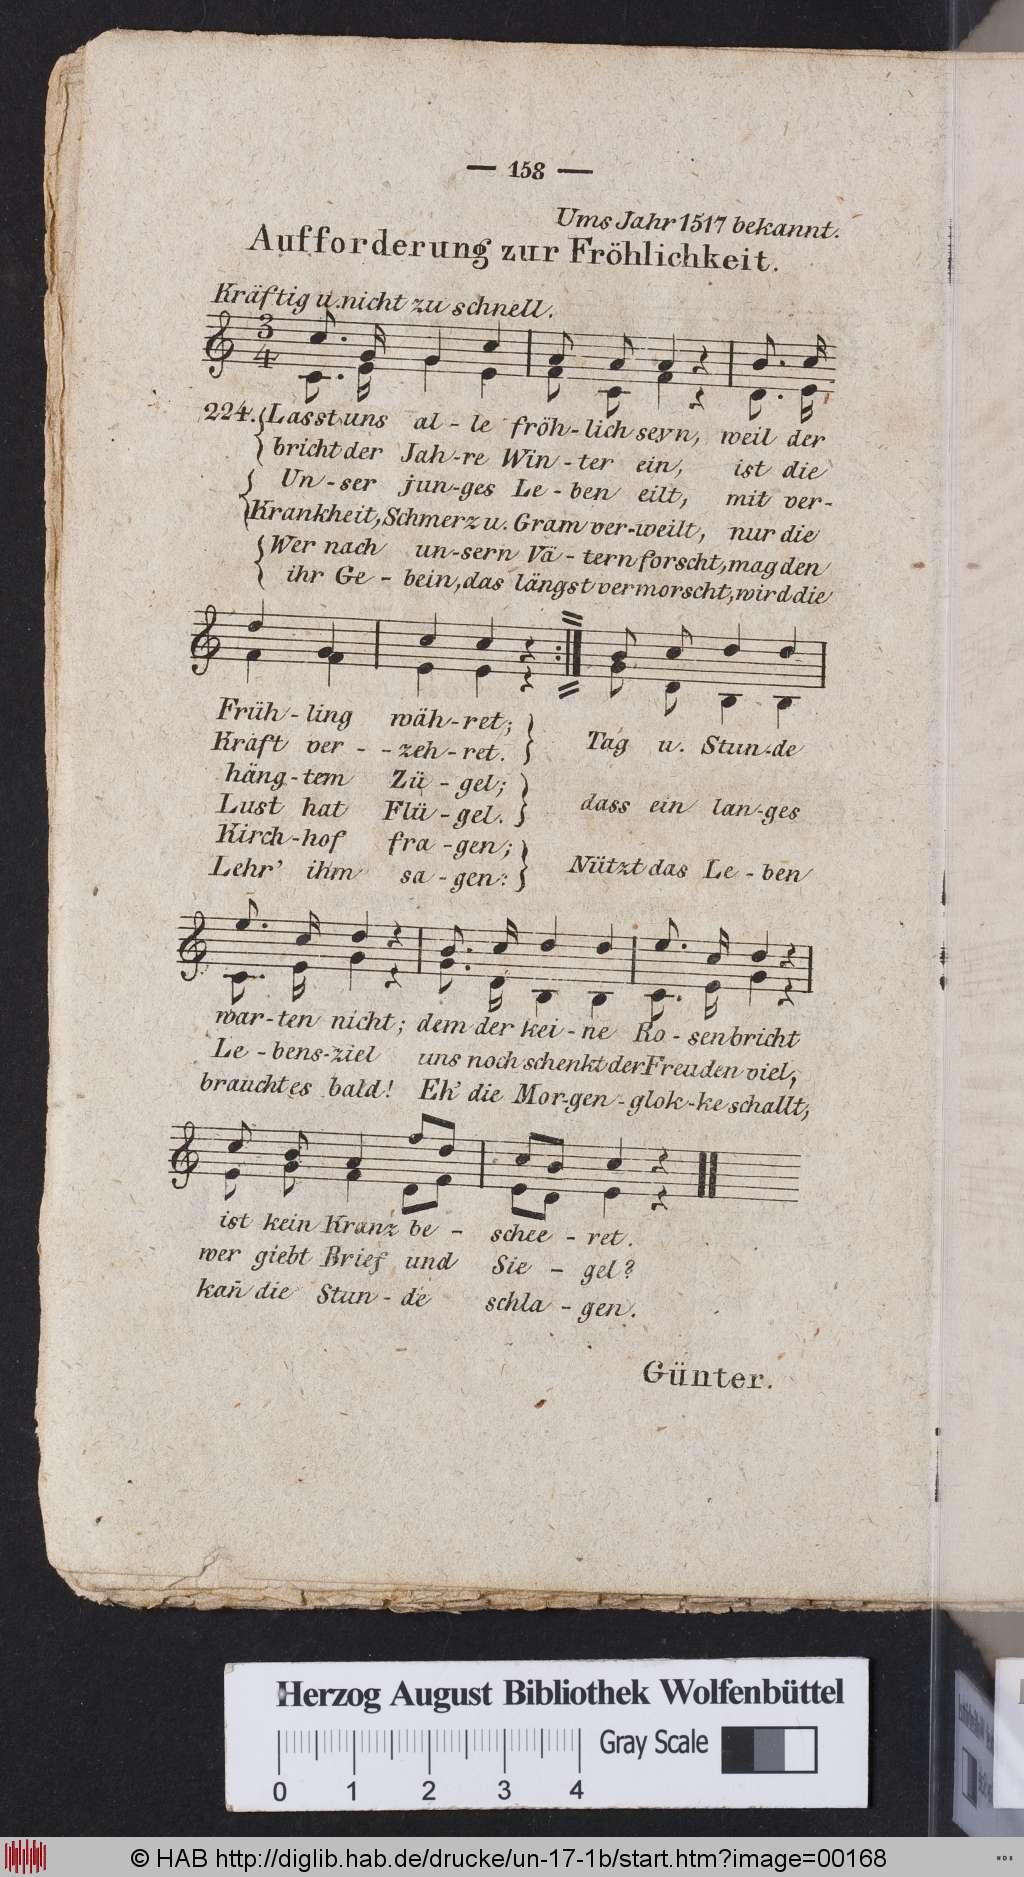 — 158 —
Ums Jahr 1517 bekannt.
Aufforderung zur Fröhlichkeit.
Kräftig u. nicht zu schnell.
3
4
224. Lasst uns al - le fröh - lich seyn, weil der
bricht der Jah - re Win - ter ein, ist die
Un - ser jun - ges Le - ben eilt, mit ver -
Krankheit, Schmerz u. Gram ver - weilt, nur die
Wer nach un - sern Vä - tern forscht, mag den
ihr Ge - bein, das längst vermorscht, wird die
Früh - ling wäh - ret;
Kraft ver - - zeh - ret. Tag u. Stun - de
häng - tem Zü - gel;
Lust hat Flü - gel. dass ein lan - ges
Kirch - hof fra - gen;
Lehr' ihm sa - gen: Nützt das Le - ben
war - ten nicht; dem der kei - ne Ro - sen bricht
Le - bens - ziel uns noch schenkt der Freuden viel,
braucht es bald! Eh' die Mor - gen - glok - ke schallt,
ist kein Kranz be - schee - ret.
wer giebt Brief und Sie - gel?
kan̄ die Stun - de schla - gen.
Günter.
Herzog August Bibliothek Wolfenbüttel
Gray Scale
0 1 2 3 4
© HAB http://diglib.hab.de/drucke/un-17-1b/start.htm?image=00168